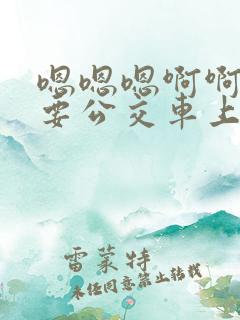 嗯嗯嗯啊啊
要公交車上
雷蒙特
未经同意禁止转载